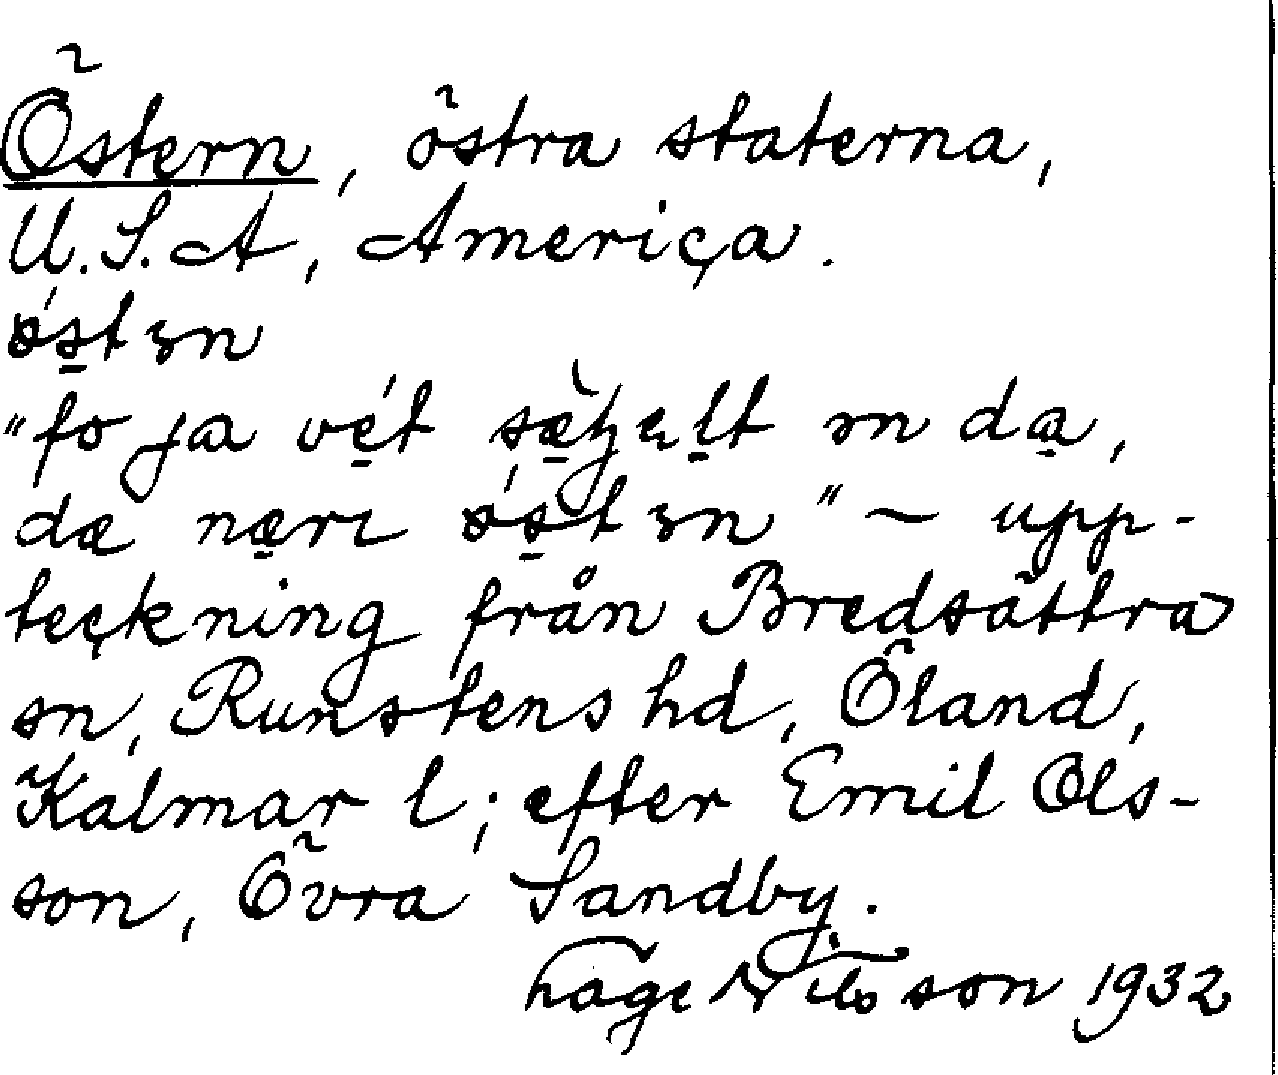 Östern, östra staterna,
U.S.A, America.
östɜn
"fo ja vét sæ̀ɧɛlt ɜn da,
dæ nærɩ östɜn" ~ upp-
teckning från Bredsättra
sn, Runstens hd, Öland,
Kalmar l; efter Emil Ols-
son, Övra Sandby.
Hage Nilsson 1932